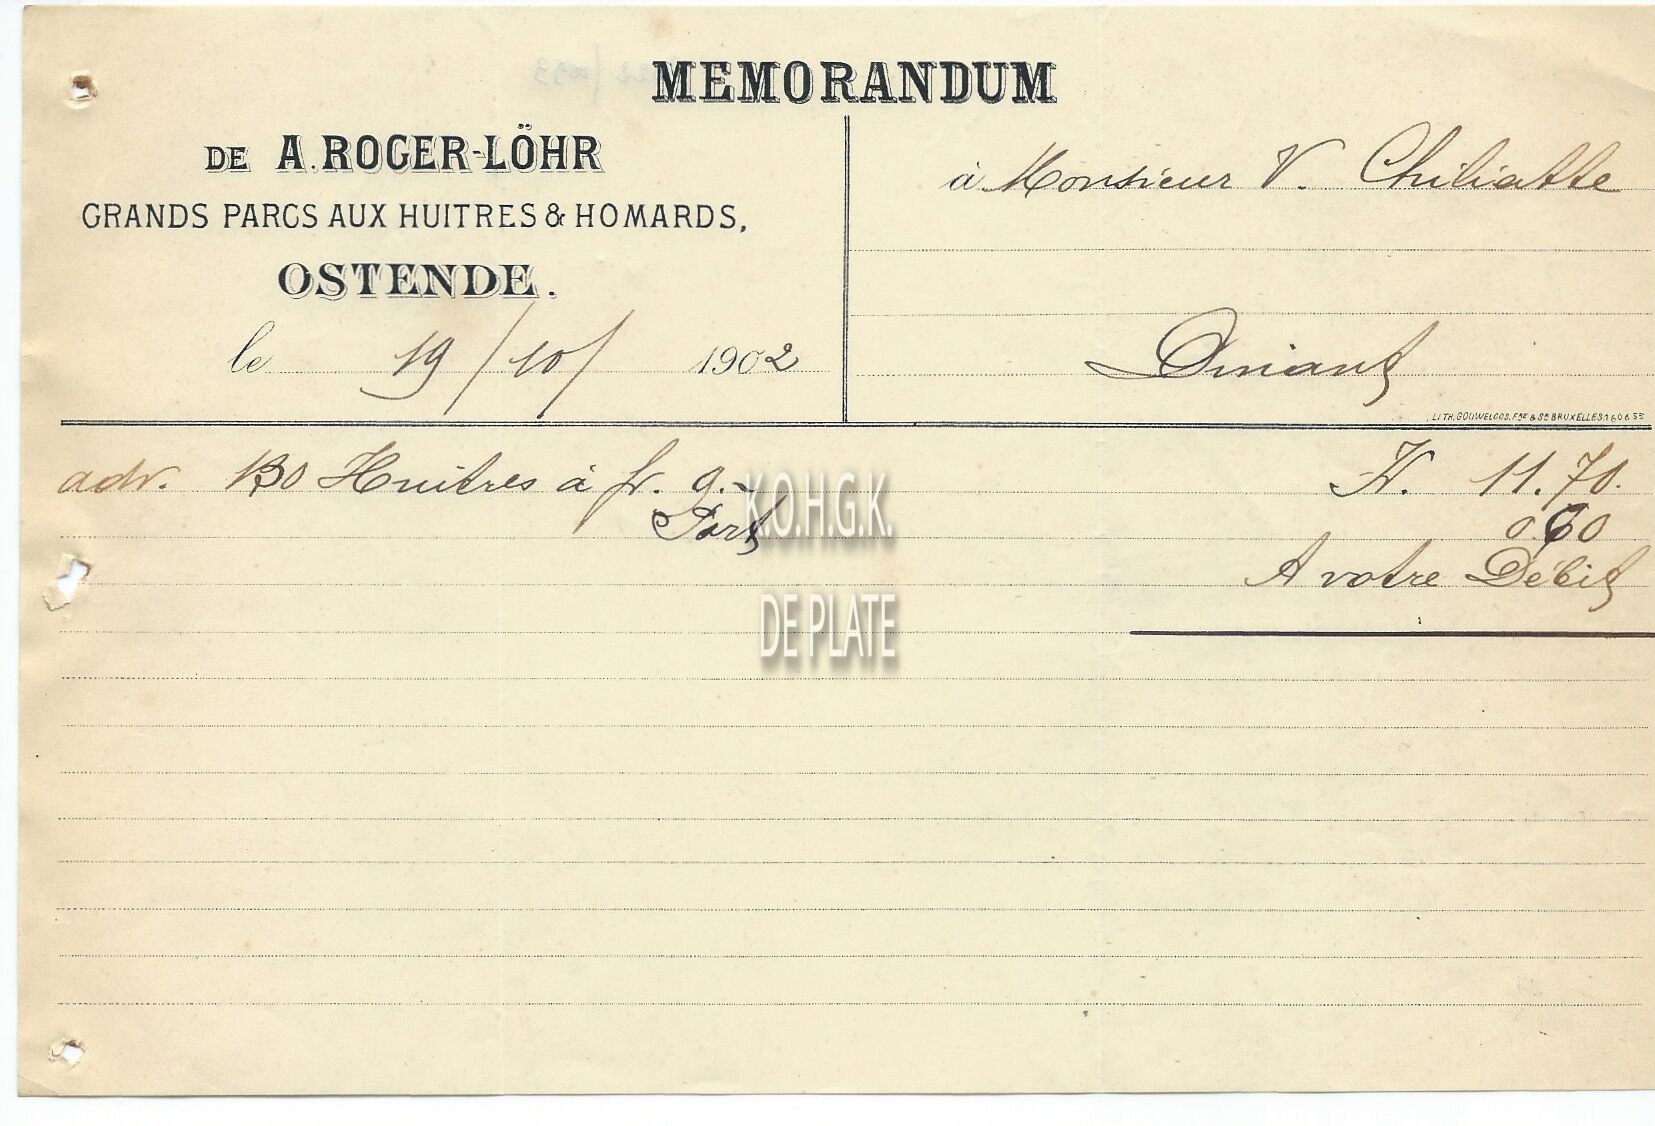 MEMORANDUM
DE A. ROGER-LÖHR
GRANDS PARCS AUX HUITRES & HOMARDS,
OSTENDE.
le 19/10/ 1902
à Monsieur V. Chiliatte
Dinant
LITH. GOUWELOOS, FRE & SR BRUXELLES 160655
adr. 130 Huitres à fr. 9.- Fr. 11.70.
Port 0.60
A votre Débit
K.O.H.G.K.
DE PLATE